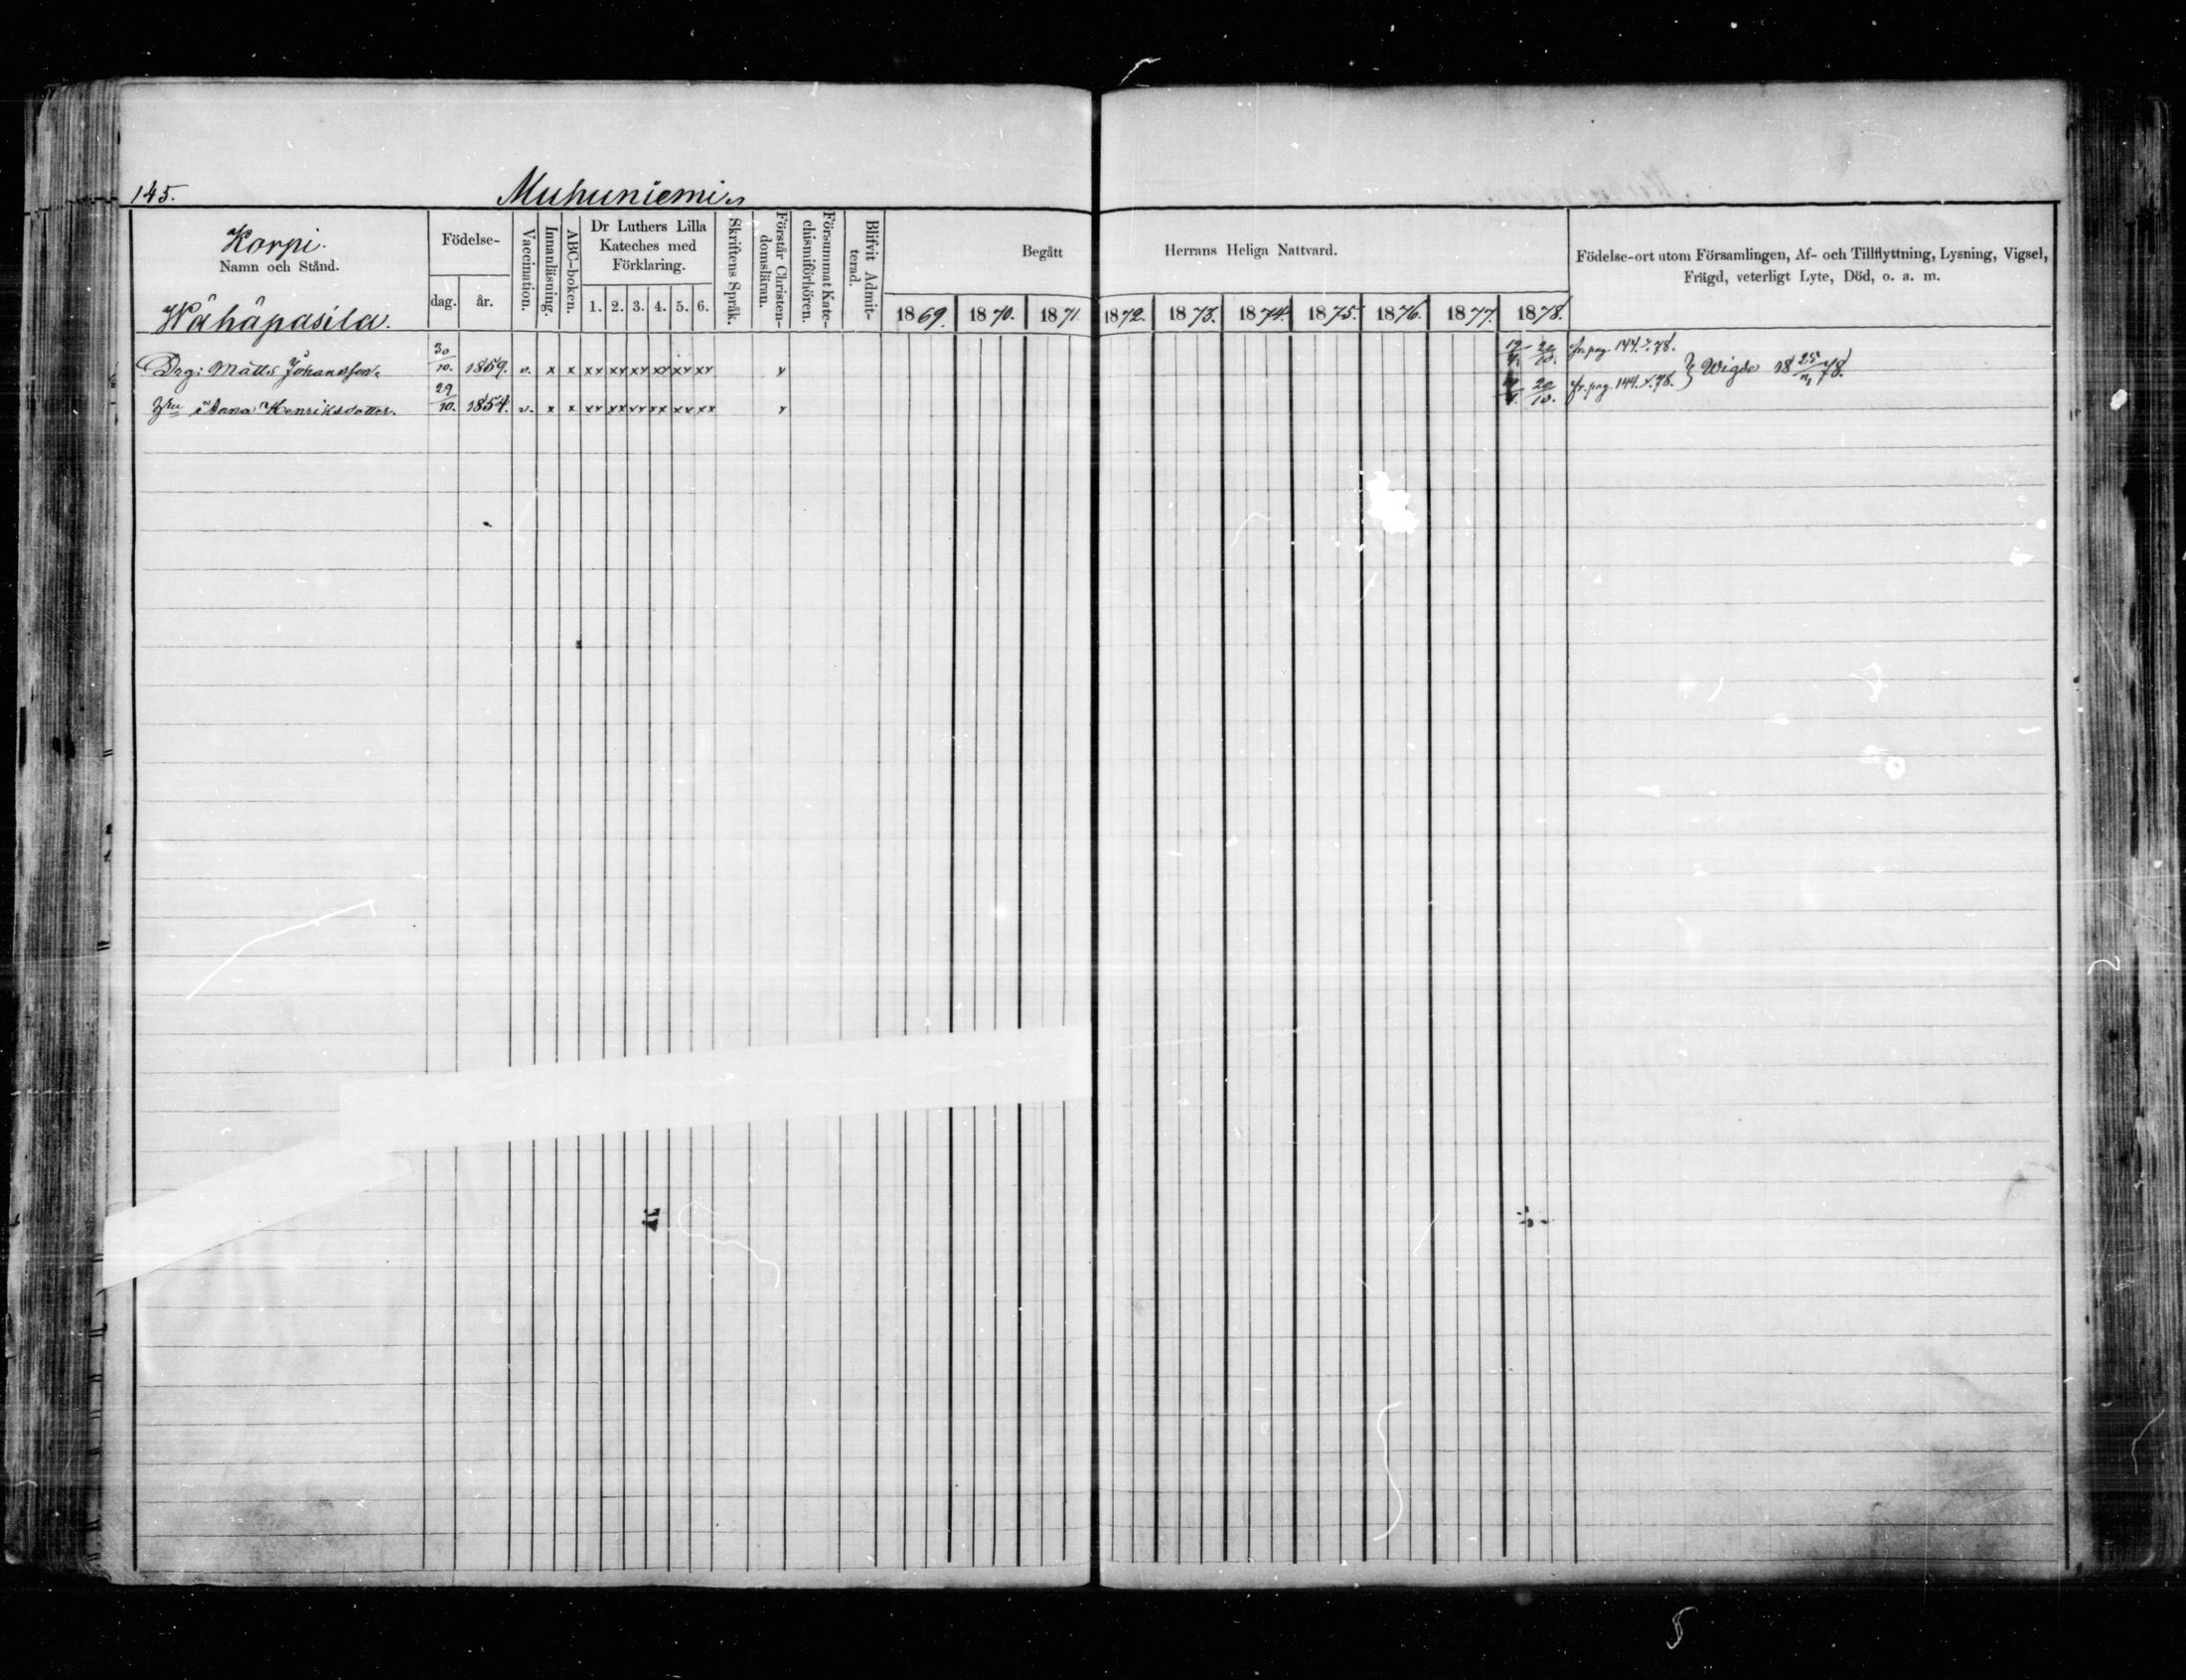 145. Muhuniemi
Korpi.
Namn och Stånd.
Wähäpasila.
Födelse-
dag. år.
Vaccination.
Innanläsning.
ABC-boken.
Dr Luthers Lilla
Kateches med
Förklaring.
1. 2. 3. 4. 5. 6.
Skriftens Språk.
Förstår Christen-
domsläran.
Försummat Kate-
chismiförhören.
Blifvit Admit-
terad.
Begått Herrans Heliga Nattvard.
1869. 1870. 1871. 1872. 1873. 1874. 1875. 1876. 1877. 1878.
Födelse-ort utom Församlingen, Af- och Tillflyttning, Lysning, Vigsel,
Frägd, veterligt Lyte, Död, o. a. m.
Drg: Matts Johansson 30/10. 1859. v. x x xx xx xx xx xx xx x 20/10. fr. pag. 144. 78. } Wigde 18 25/ 78.
Anna Henriksdotter. 29/10. 1854. v. x x xx xx xx xx xx xx x 20/10. fr. pag. 144. 78.